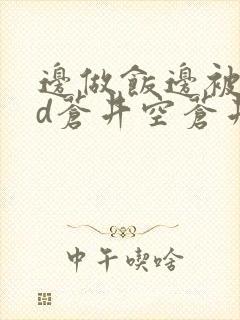 邊做飯邊被
d蒼井空蒼井
中午喫啥